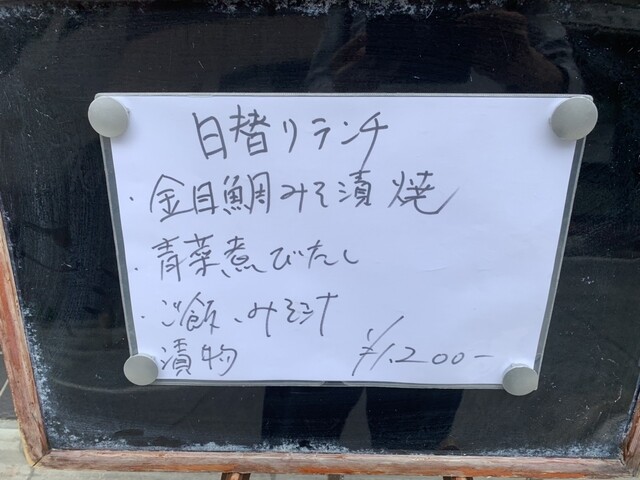 日替りランチ
・金目鯛みそ漬焼
・青菜煮びたし
・ご飯、みそ汁
漬物 ¥1,200-